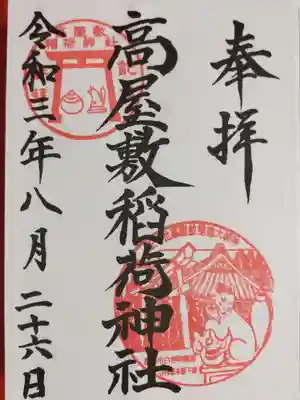 奉拝
高屋敷稲荷神社
令和三年八月二十六日